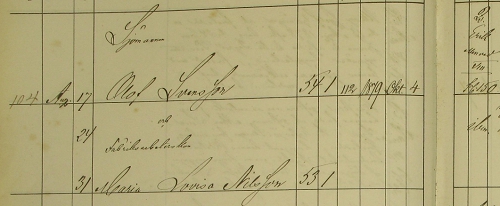 Sjömannen
104 Aug. 17 Olof Svensson 54 1 112 1879 Okt 4
24 och
Fabriksarbeterskan
31 Maria Lovisa Nilsson 53 1